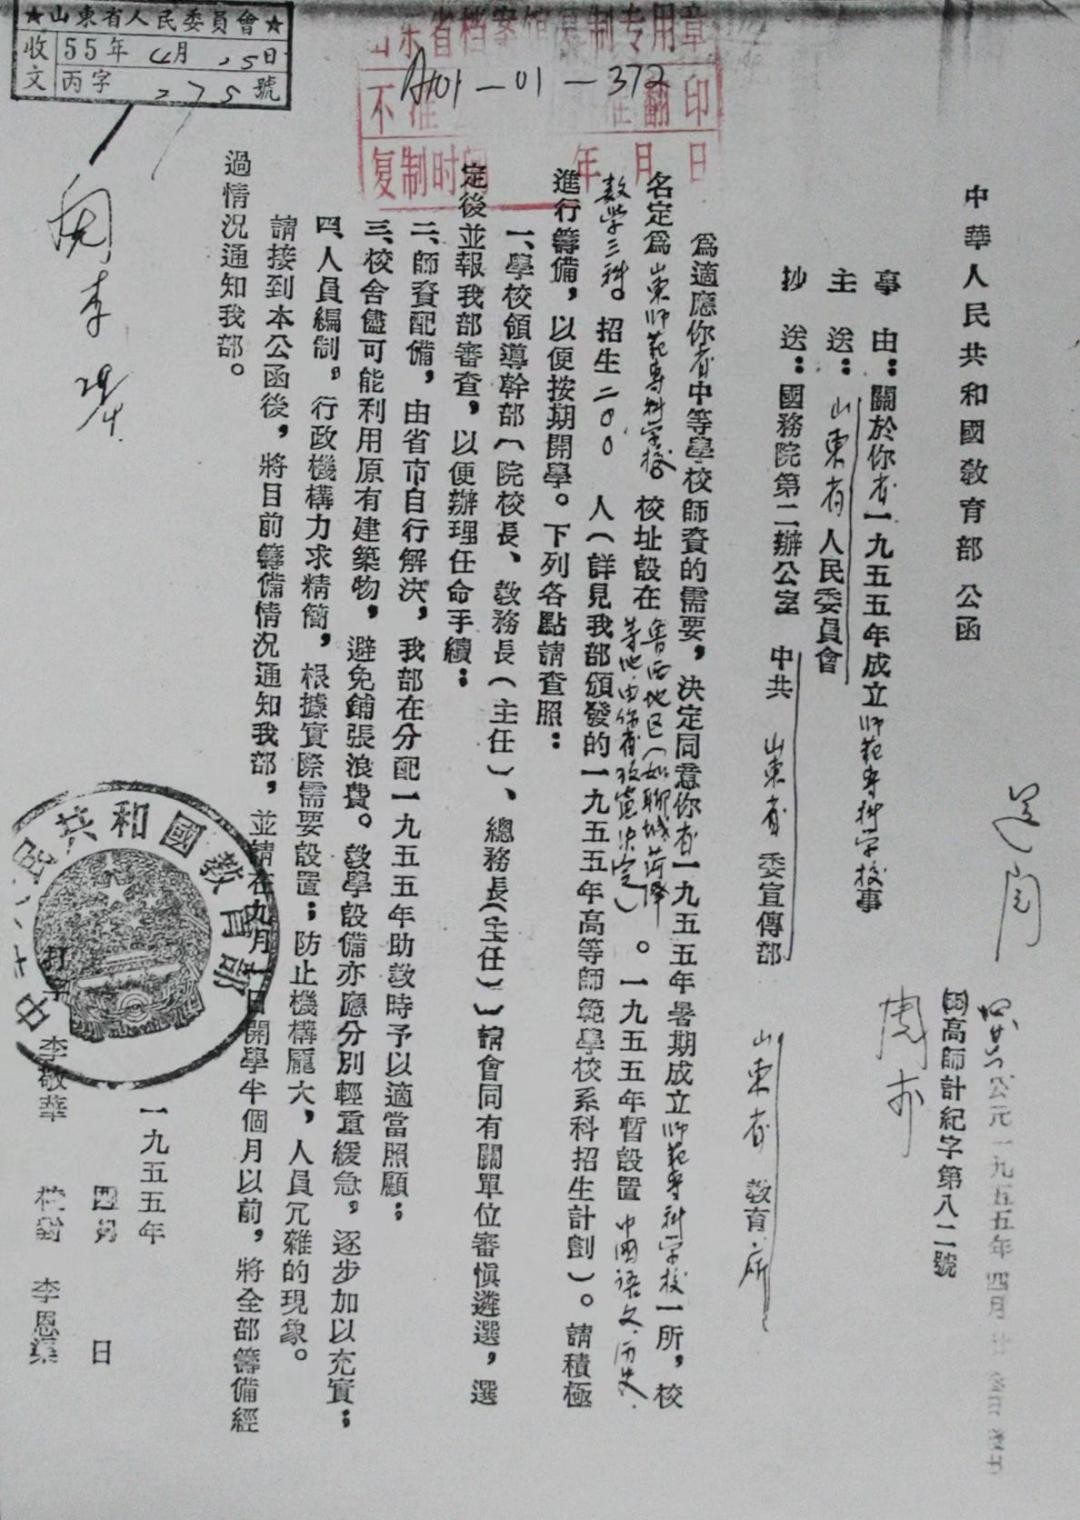 ★山東省人民委員會★
收文
55年4月25日
丙字275號
山东省档案馆复制专用章
A101—01—372
不准翻印
复制时间 年 月 日
中華人民共和國教育部 公函
公元一九五五年四月廿 日發出
高師計紀字第八二號
事 由：關於你省一九五五年成立师范专科学校事
主 送：山東省人民委員會
抄 送：國務院第二辦公室 中共 山東省 委宣傳部 山東省 教育厅
爲適應你省中等學校師資的需要，決定同意你省一九五五年暑期成立师范专科学校一所，校
名定爲山東师范专科学校。校址設在鲁西地区（如聊城菏澤等地，由你省考慮决定）。一九五五年暫設置中國语文、历史、
数学三科。招生二〇〇人（詳見我部頒發的一九五五年高等師範學校系科招生計劃）。請積極
進行籌備，以便按期開學。下列各點請查照：
一、學校領導幹部〔院校長、教務長（主任）、總務長（主任）〕請會同有關單位審慎遴選，選
定後並報我部審查，以便辦理任命手續；
二、師資配備，由省市自行解決，我部在分配一九五五年助教時予以適當照顧；
三、校舍儘可能利用原有建築物，避免鋪張浪費。教學設備亦應分別輕重緩急，逐步加以充實；
四、人員編制。行政機構力求精簡，根據實際需要設置；防止機構龐大，人員冗雜的現象。
請接到本公函後，將目前籌備情況通知我部，並請在九月一日開學半個月以前，將全部籌備經
過情況通知我部。
中華人民共和國教育部
一九五五年
四月 日
李敬華 校對 李恩榮